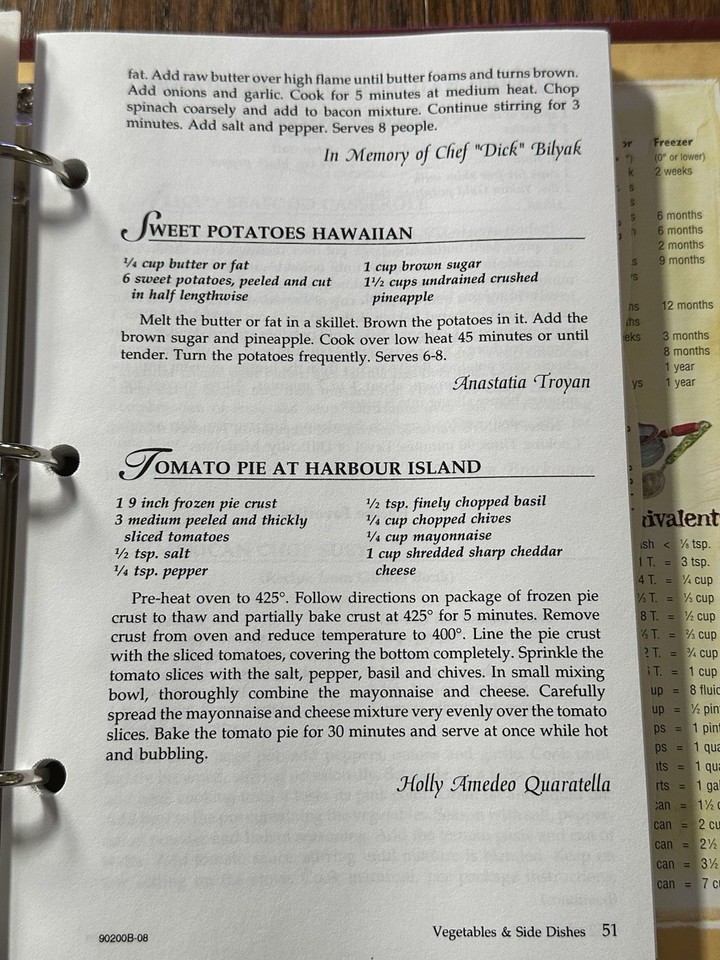 fat. Add raw butter over high flame until butter foams and turns brown.
Add onions and garlic. Cook for 5 minutes at medium heat. Chop
spinach coarsely and add to bacon mixture. Continue stirring for 3
minutes. Add salt and pepper. Serves 8 people.
In Memory of Chef "Dick" Bilyak
SWEET POTATOES HAWAIIAN
¼ cup butter or fat
6 sweet potatoes, peeled and cut
in half lengthwise
1 cup brown sugar
1½ cups undrained crushed
pineapple
Melt the butter or fat in a skillet. Brown the potatoes in it. Add the
brown sugar and pineapple. Cook over low heat 45 minutes or until
tender. Turn the potatoes frequently. Serves 6-8.
Anastatia Troyan
TOMATO PIE AT HARBOUR ISLAND
1 9 inch frozen pie crust
3 medium peeled and thickly
sliced tomatoes
½ tsp. salt
¼ tsp. pepper
½ tsp. finely chopped basil
¼ cup chopped chives
¼ cup mayonnaise
1 cup shredded sharp cheddar
cheese
Pre-heat oven to 425°. Follow directions on package of frozen pie
crust to thaw and partially bake crust at 425° for 5 minutes. Remove
crust from oven and reduce temperature to 400°. Line the pie crust
with the sliced tomatoes, covering the bottom completely. Sprinkle the
tomato slices with the salt, pepper, basil and chives. In small mixing
bowl, thoroughly combine the mayonnaise and cheese. Carefully
spread the mayonnaise and cheese mixture very evenly over the tomato
slices. Bake the tomato pie for 30 minutes and serve at once while hot
and bubbling.
Holly Amedeo Quaratella
90200B-08
Vegetables & Side Dishes 51
Freezer
(0° or lower)
2 weeks
6 months
6 months
2 months
9 months
12 months
3 months
8 months
1 year
1 year
< ⅛ tsp.
= 3 tsp.
4 T. = ¼ cup
= ⅓ cup
8 T. = ½ cup
= ⅔ cup
= ¾ cup
= 1 cup
= 8
= ½
= 1
= 1
= 1
= 1
can = 1½
can = 2
can = 2½
can = 3½
can = 7